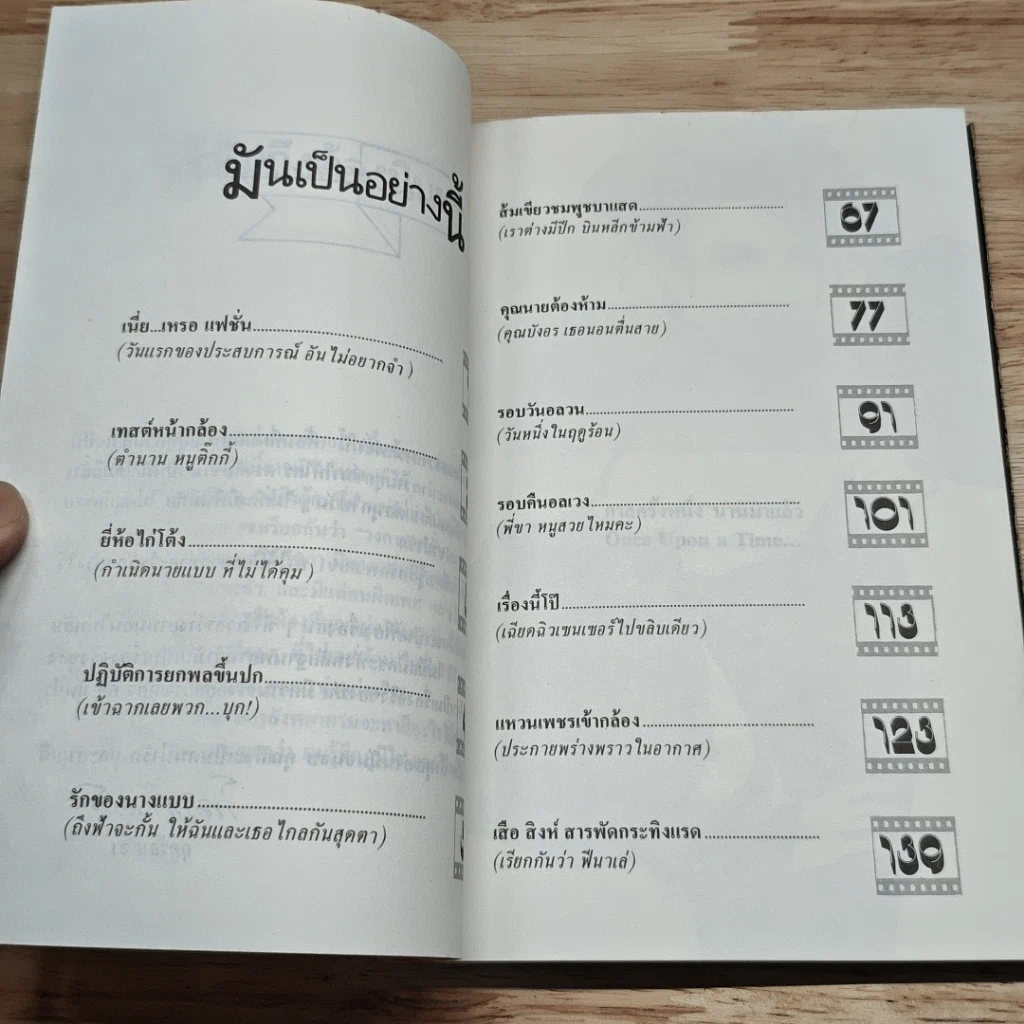 มันเป็นอย่างนี้
เนี่ย...เหรอ แฟชั่น
(วันแรกของประสบการณ์ อันไม่อยากจำ)
เทสต์หน้ากล้อง
(ตำนาน หนูติ๊กกี้)
ยี่ห้อไก่โต้ง
(กำเนิดนายแบบ ที่ไม่ได้คุม)
ปฏิบัติการยกพลขึ้นปก
(เข้าฉากเลยพวก...บุก!)
รักของนางแบบ
(ถึงฟ้าจะกั้น ให้ฉันและเธอไกลกันสุดตา)
ส้มเขียวชมพูชบาแสด 67
(เราต่างมีปีก บินหลีกข้ามฟ้า)
คุณนายต้องห้าม 77
(คุณบังอร เธอนอนตื่นสาย)
รอบวันอลวน 91
(วันหนึ่งในฤดูร้อน)
รอบคืนอลเวง 101
(พี่ขา หนูสวยไหมคะ)
เรื่องนี้โป๊ 113
(เฉียดฉิวเซนเซอร์ไปขลิบเดียว)
แหวนเพชรเข้ากล้อง 123
(ประกายพร่างพราวในอากาศ)
เสือ สิงห์ สารพัดกระทิงแรด 139
(เรียกกันว่า ฟีนาเล่)
Once Upon a Time...